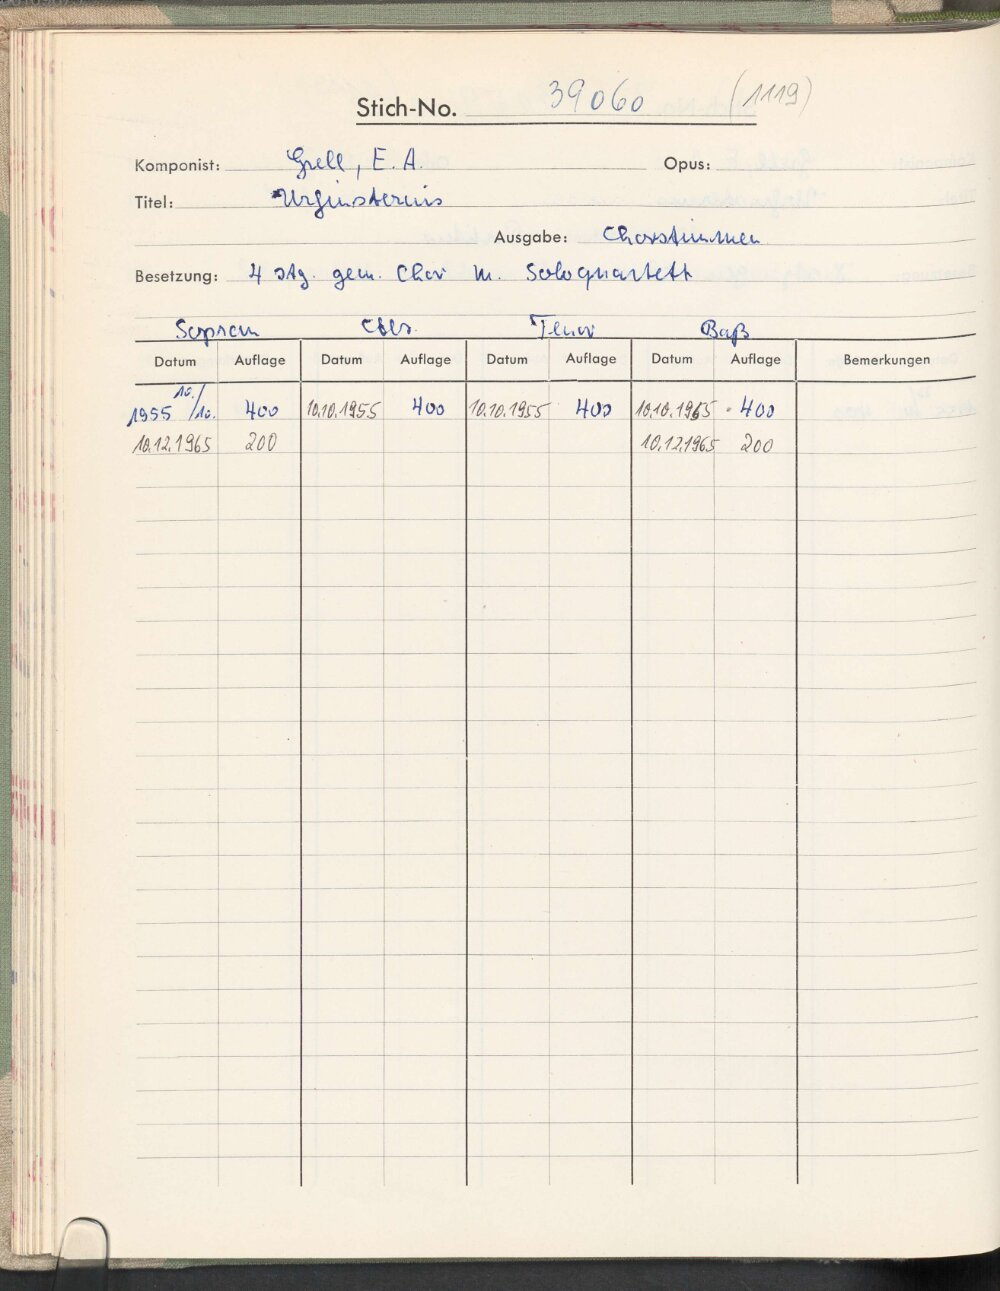 Stich-No. 39060 (1119)
Komponist: Grell, E. A. Opus:
Titel:
Ausgabe: Chorstimmen
Besetzung: 4 stg. gem. Chor m. Soloquartett
Sopran Tenor Baß
Datum Auflage Datum Auflage Datum Auflage Datum Auflage Bemerkungen
1955 10./10. 400 10.10.1955 400 10.10.1955 400 10.10.1965 400
10.12.1965 200 10.12.1965 200